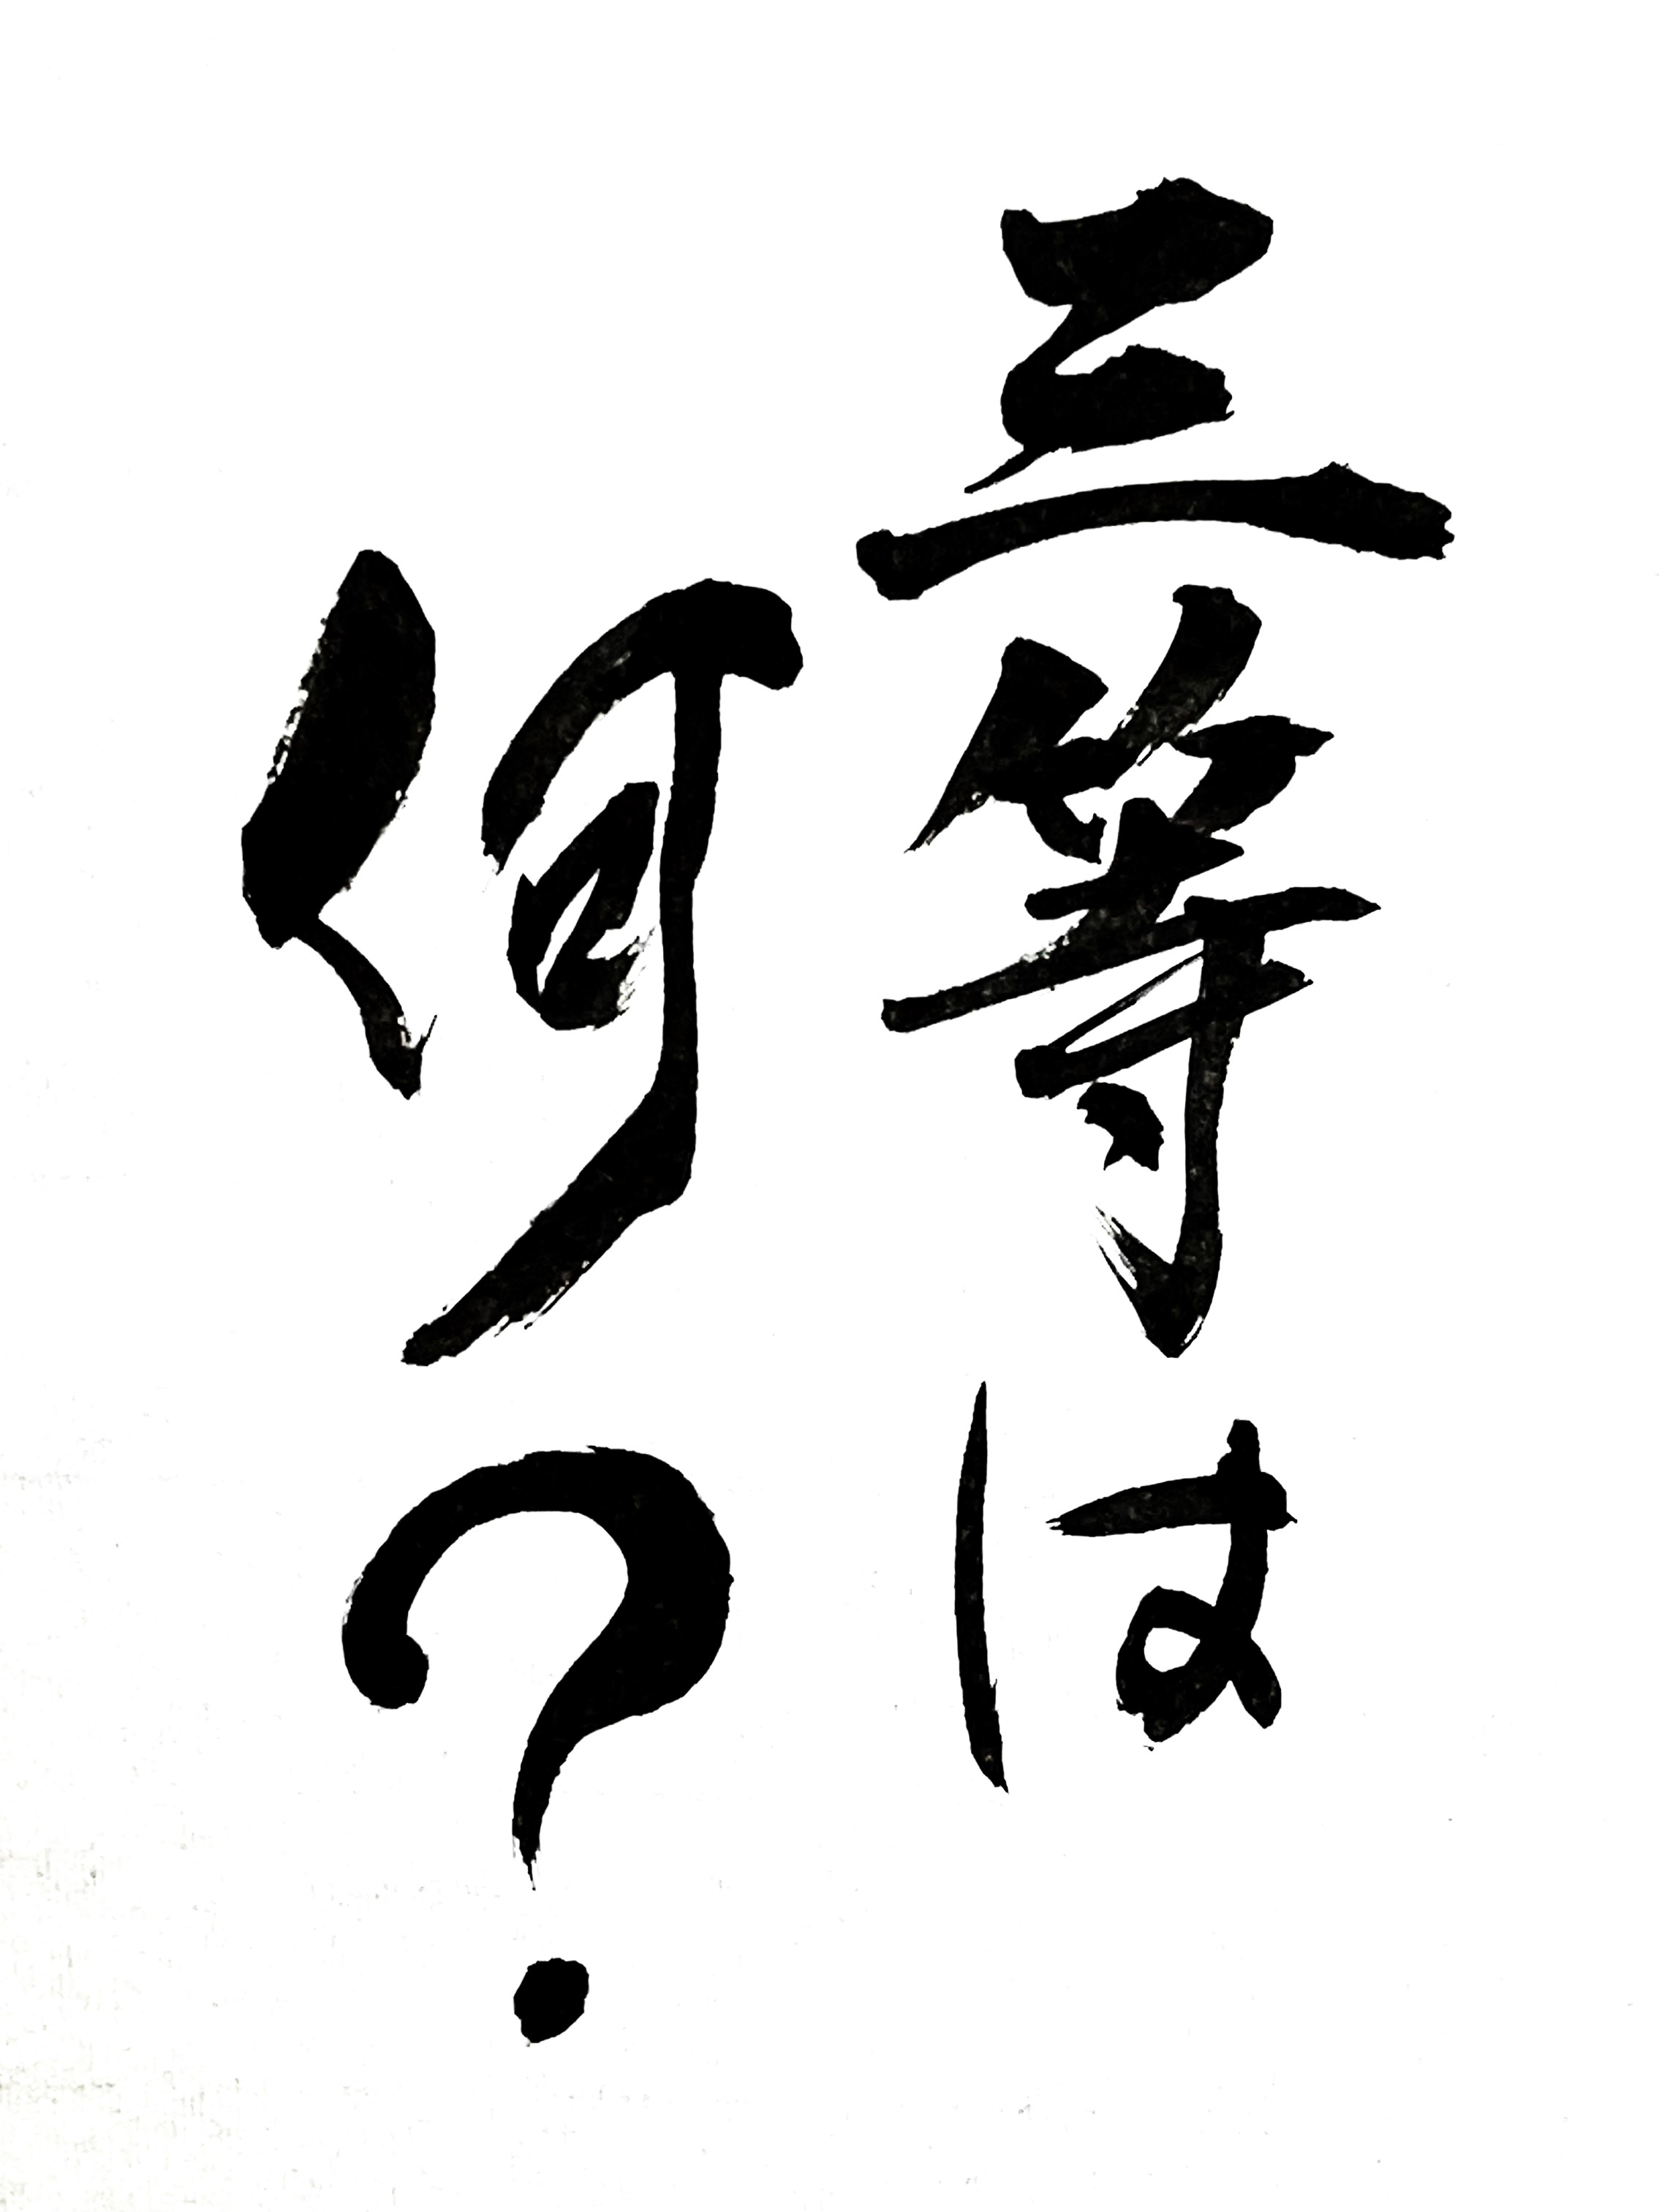 三等は
何?